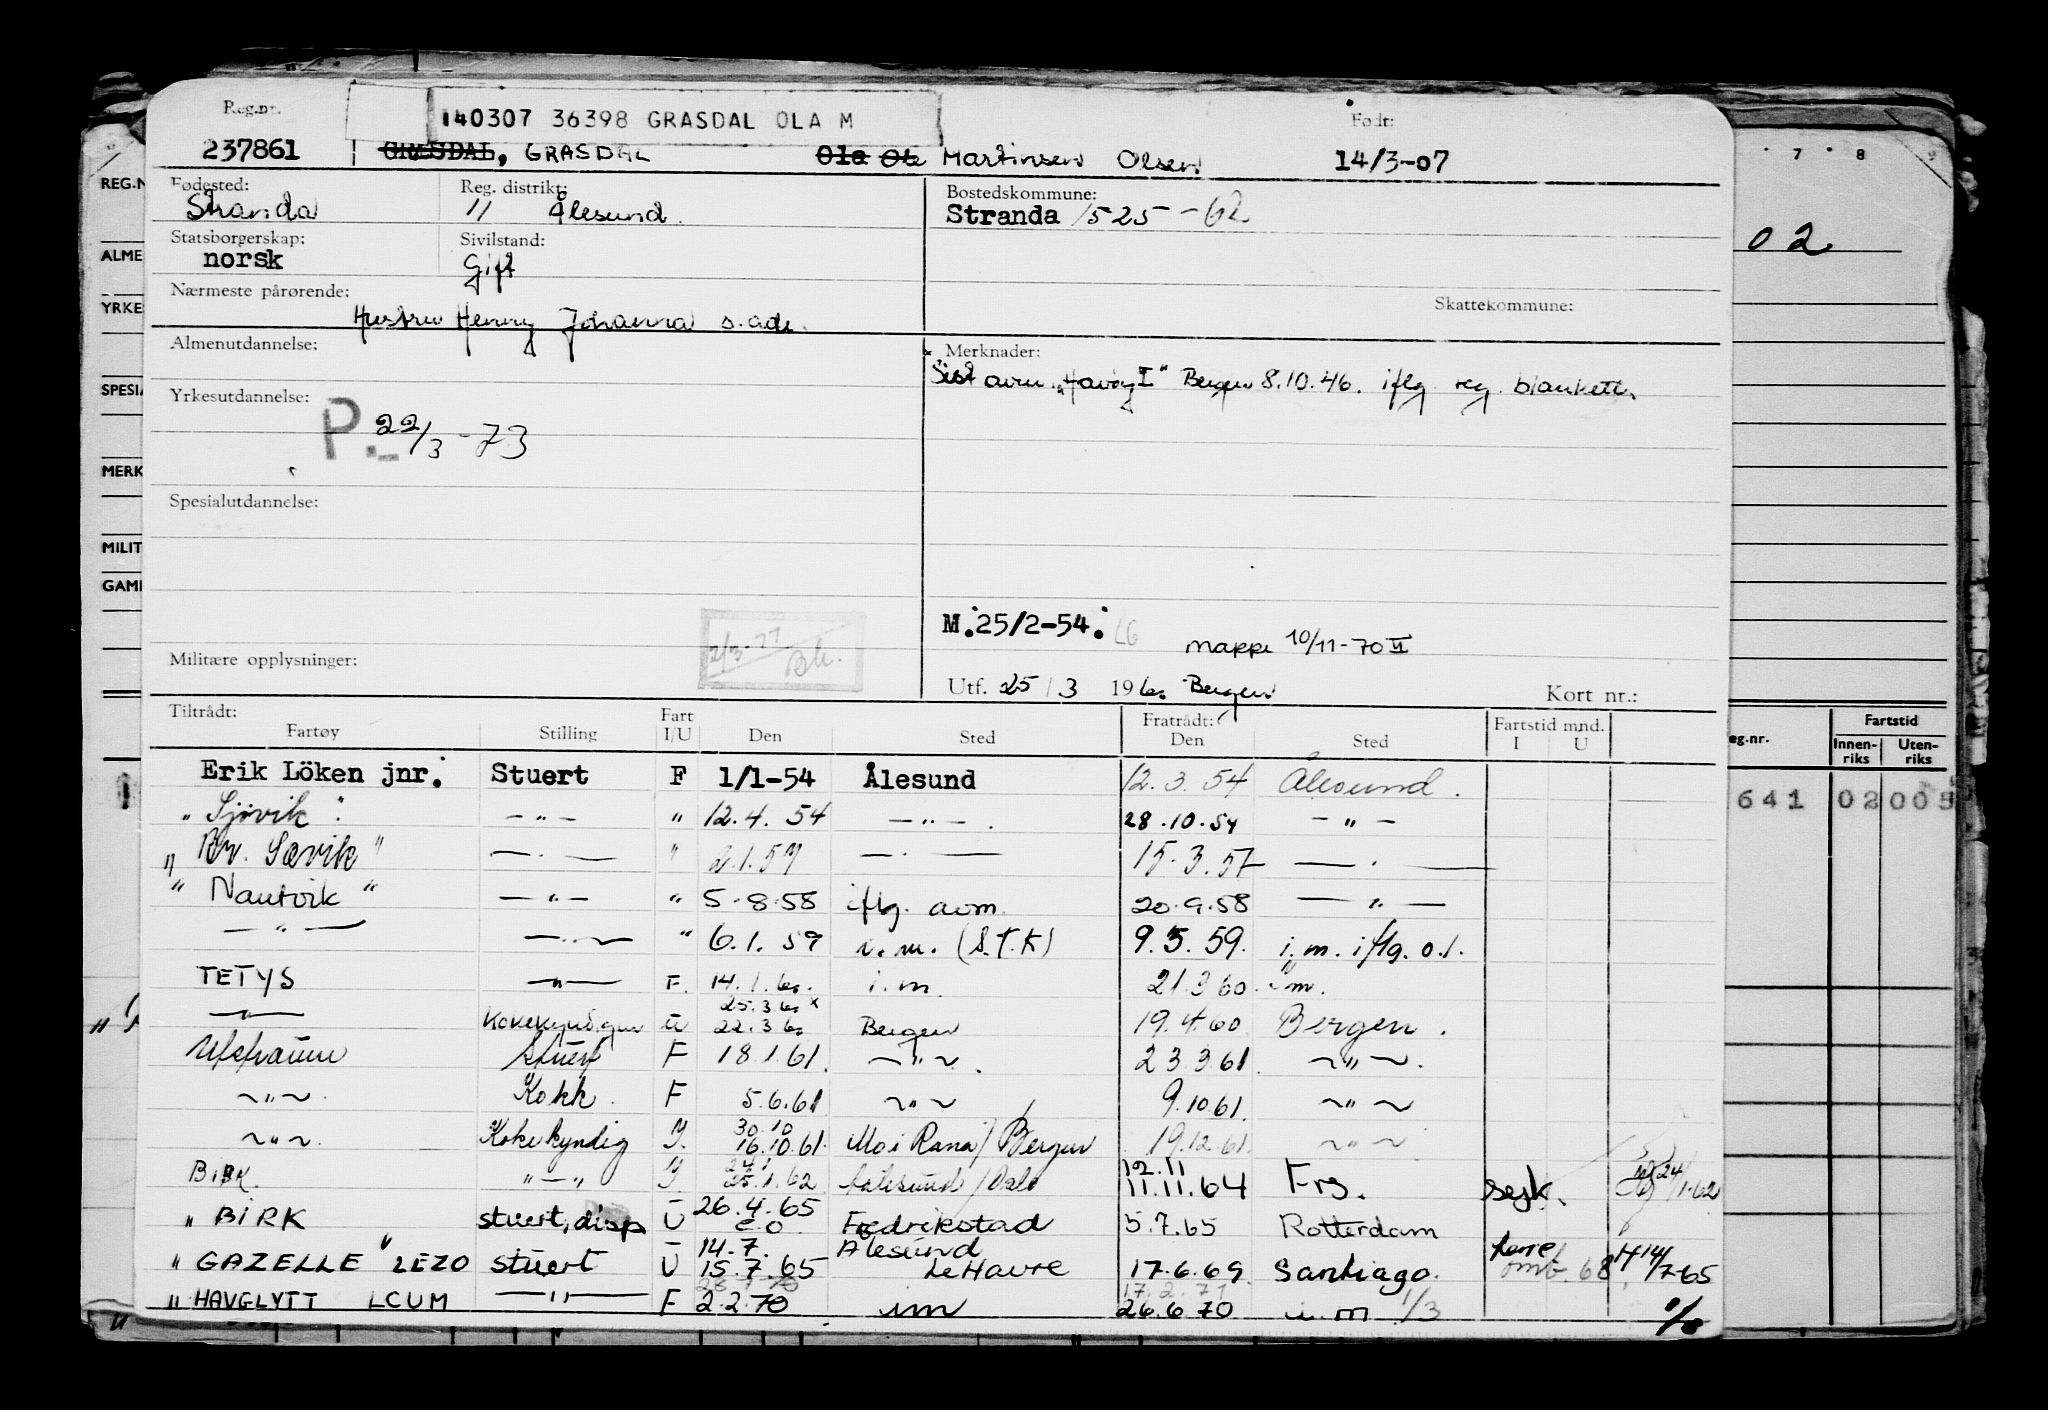 Reg.nr. 140307 36398 GRASDAL OLA M Født:
237861 GRÆSDAL, GRASDAL Ola Ole Martinsen Olsen 14/3-07
Fødested: Reg. distrikt: Bostedskommune:
Stranda 11 Ålesund. Stranda 1525 -62
Statsborgerskap: Sivilstand:
norsk Gift
Nærmeste pårørende: Skattekommune:
Hustru Henny Johanna s. adr.
Almenutdannelse: Merknader:
Sist avm. "Havøy I" Bergen 8.10.46. iflg. reg. blankett.
Yrkesutdannelse:
P. 22/3-73
Spesialutdannelse:
M. 25/2-54. LG
mappe 10/11-70 VI
2/3-77
Militære opplysninger:
Utf. 25/3 1960 Bergen Kort nr.:
Tiltrådt: Fart Fratrådt: Fartstid mnd.
Fartøy Stilling I/U Den Sted Den Sted I U
Erik Löken jnr. Stuert F 1/1-54 Ålesund 12.3.54 Ålesund.
"Sjøvik". — " — " 12.4.54 — " —. 28.10.54 — " —
"Br. Sævik" — " — " 2.1.57 — " — 15.3.57 — " —
"Nautvik" — " — " 5.8.58 iflg. avm. 20.9.58 — " —
— " — — " — " 6.1.59 i.m. (S.T.K) 9.5.59. i.m. iflg. o.l.
TETYS — " — F. 14.1.60. i.m. 21.3.60. i.m.
25.3.60 x
— " — Kokekyndig U 22.3.60 Bergen 19.4.60 Bergen.
Ulstraum Stuert F 18.1.61. — " —. 23.3.61 — " —.
— " —. Kokk. F 5.6.61 — " — 9.10.61. — " —
30.10
— " —. Kokekyndig I. 16.10.61. Mo i Rana/Bergen 19.12.61. — " —
24.1 12.11
BIRK. " — " I 25.1.62 Aalesund/Oslo 11.11.64 Frs. sejk. 24/1-62
26.4.65
"BIRK" stuert, disp U e.o Fredrikstad 5.7.65 Rotterdam
14.7. Ålesund
"GAZELLE" LEZO stuert U 15.7.65 Le Havre 17.6.69. Santiago. 68 14/7-65
28.7.70 17.2.71
"HAVGLYTT LCUM — " — F 2.2.70 im 26.6.70 i.m 1/3
7 8 9
REG.N
02
ALME
YRKE
SPESI
MERK
MILIT
GAM
eg.nr. Fartstid
Innen-riks Uten-riks
641 02 005